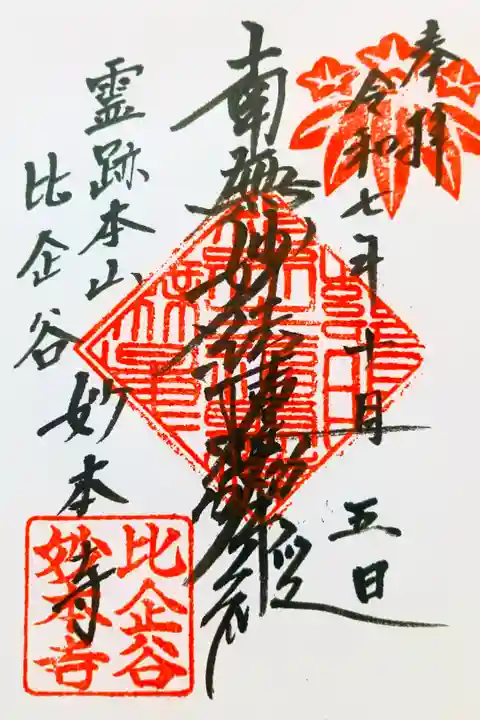 奉拝
令和七年十月五日
南無妙法蓮華経
霊跡本山
比企谷妙本寺
比企谷
妙本寺